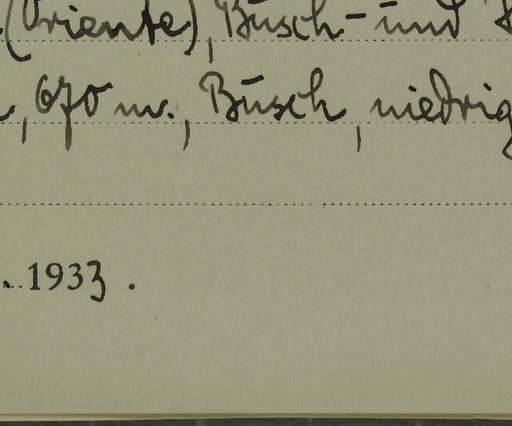 (Oriente), Busch- und
, 670 m., Busch, niedrig
. 1933.